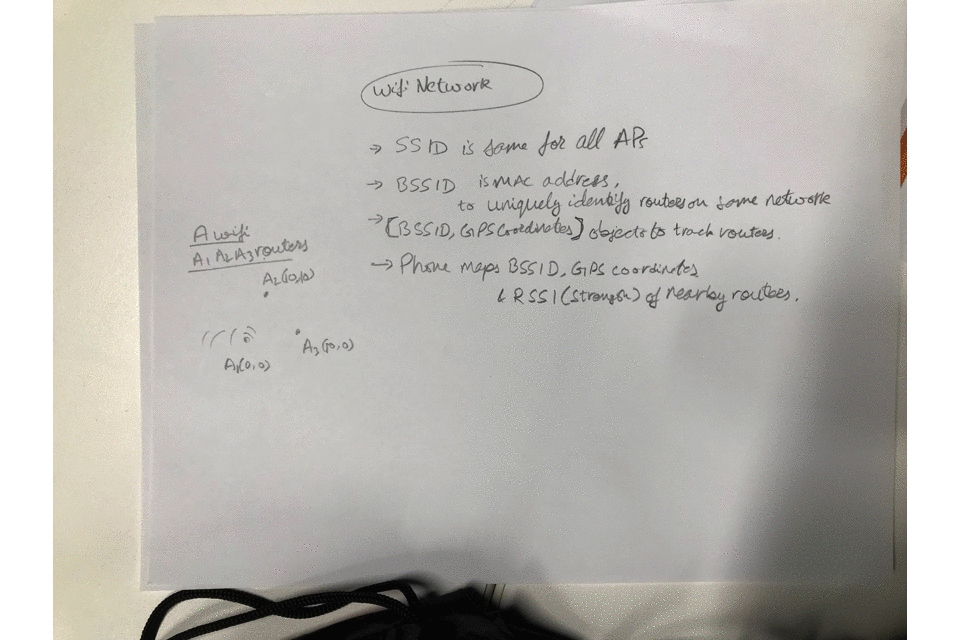 Wifi Network
→ SSID is same for all APs
→ BSSID is MAC address,
to uniquely identify routers on same network
→ [BSSID, GPS coordinates] objects to track routers.
→ Phone maps BSSID, GPS coordinates
& RSSI (strength) of nearby routers.
A wifi
A1 A2 A3 routers
A2(0,10)
A3(10,0)
A1(0,0)